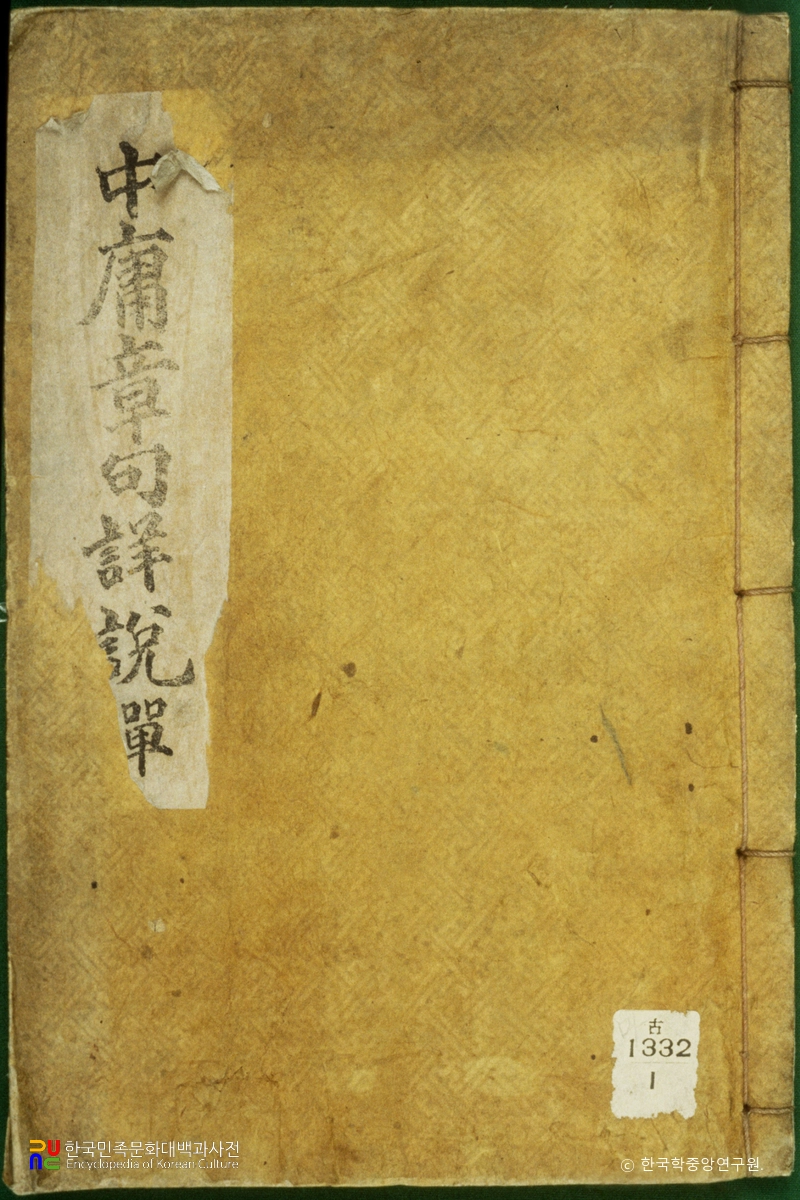 中庸章句詳說單
古
1332
1
한국민족문화대백과사전
Encyclopedia of Korean Culture
© 한국학중앙연구원.